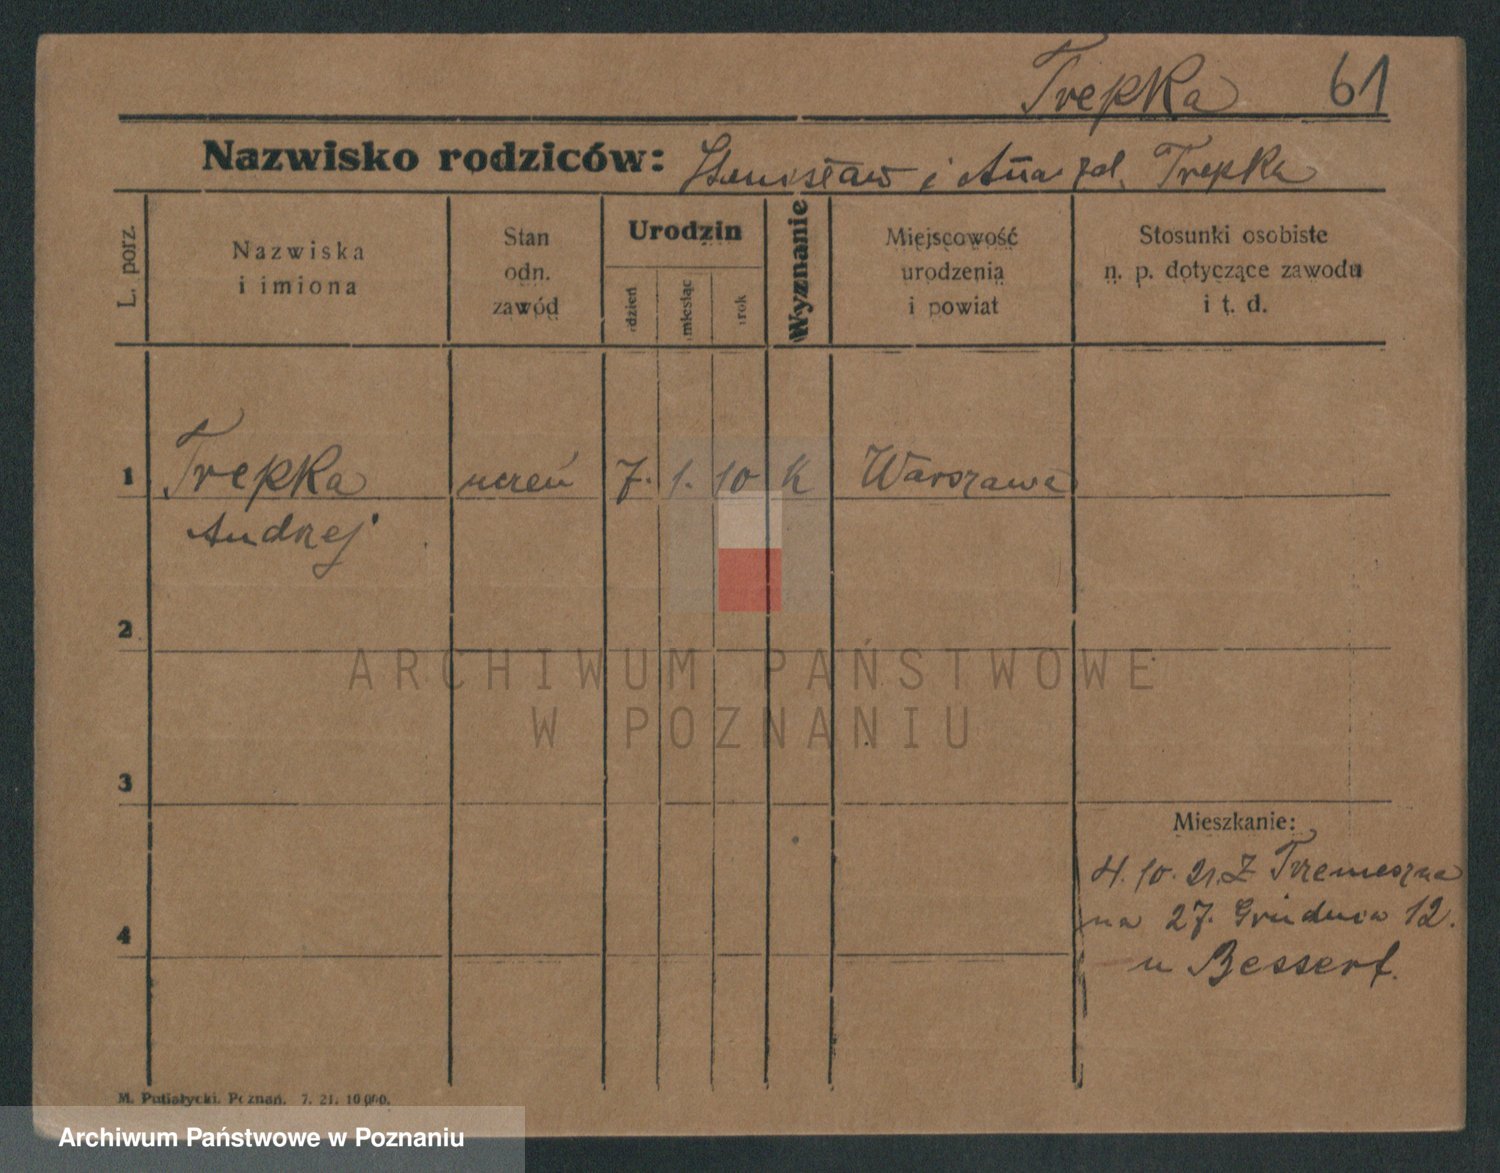 Trepka 61
Nazwisko rodziców: Stanisław i Anna zd. Trepka
L. porz.
Nazwiska
i imiona
Stan
odn.
zawód
Urodzin
dzień
miesiąc
rok
Wyznanie
Miejscowość
urodzenia
i powiat
Stosunki osobiste
n. p. dotyczące zawodu
i t. d.
1 Trepka uczeń 7. 1. 10 k Warszawa
Andrzej
2
ARCHIWUM PAŃSTWOWE
W POZNANIU
3
Mieszkanie:
4. 10. 21. Z Trzemeszna
na 27. Grudnia 12.
4
u Bessert.
M. Putiatycki. Poznań. 7. 21. 10 000.
Archiwum Państwowe w Poznaniu